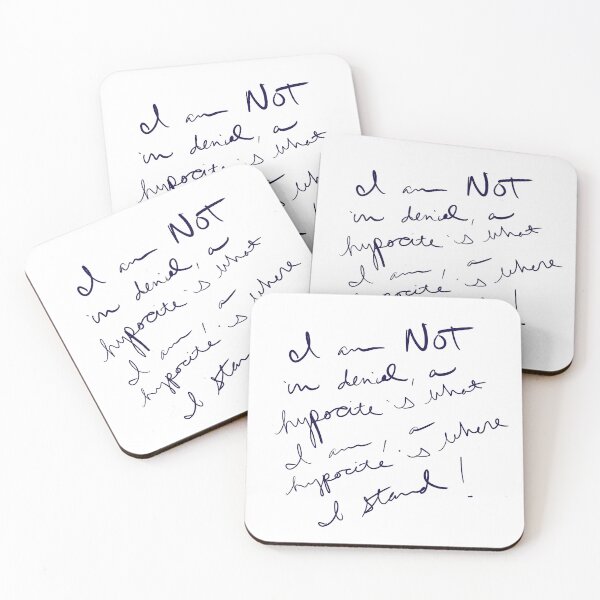 I am NOT
in denial, a
hypocite is what
I am NOT
in denial, a
hypocite is what
I am, a
hypocite is where
I am NOT
in denial, a
hypocite is what
I am, a
hypocite is where
I Stan
I am NOT
in denial, a
hypocite is what
I am, a
hypocite is where
I Stand!